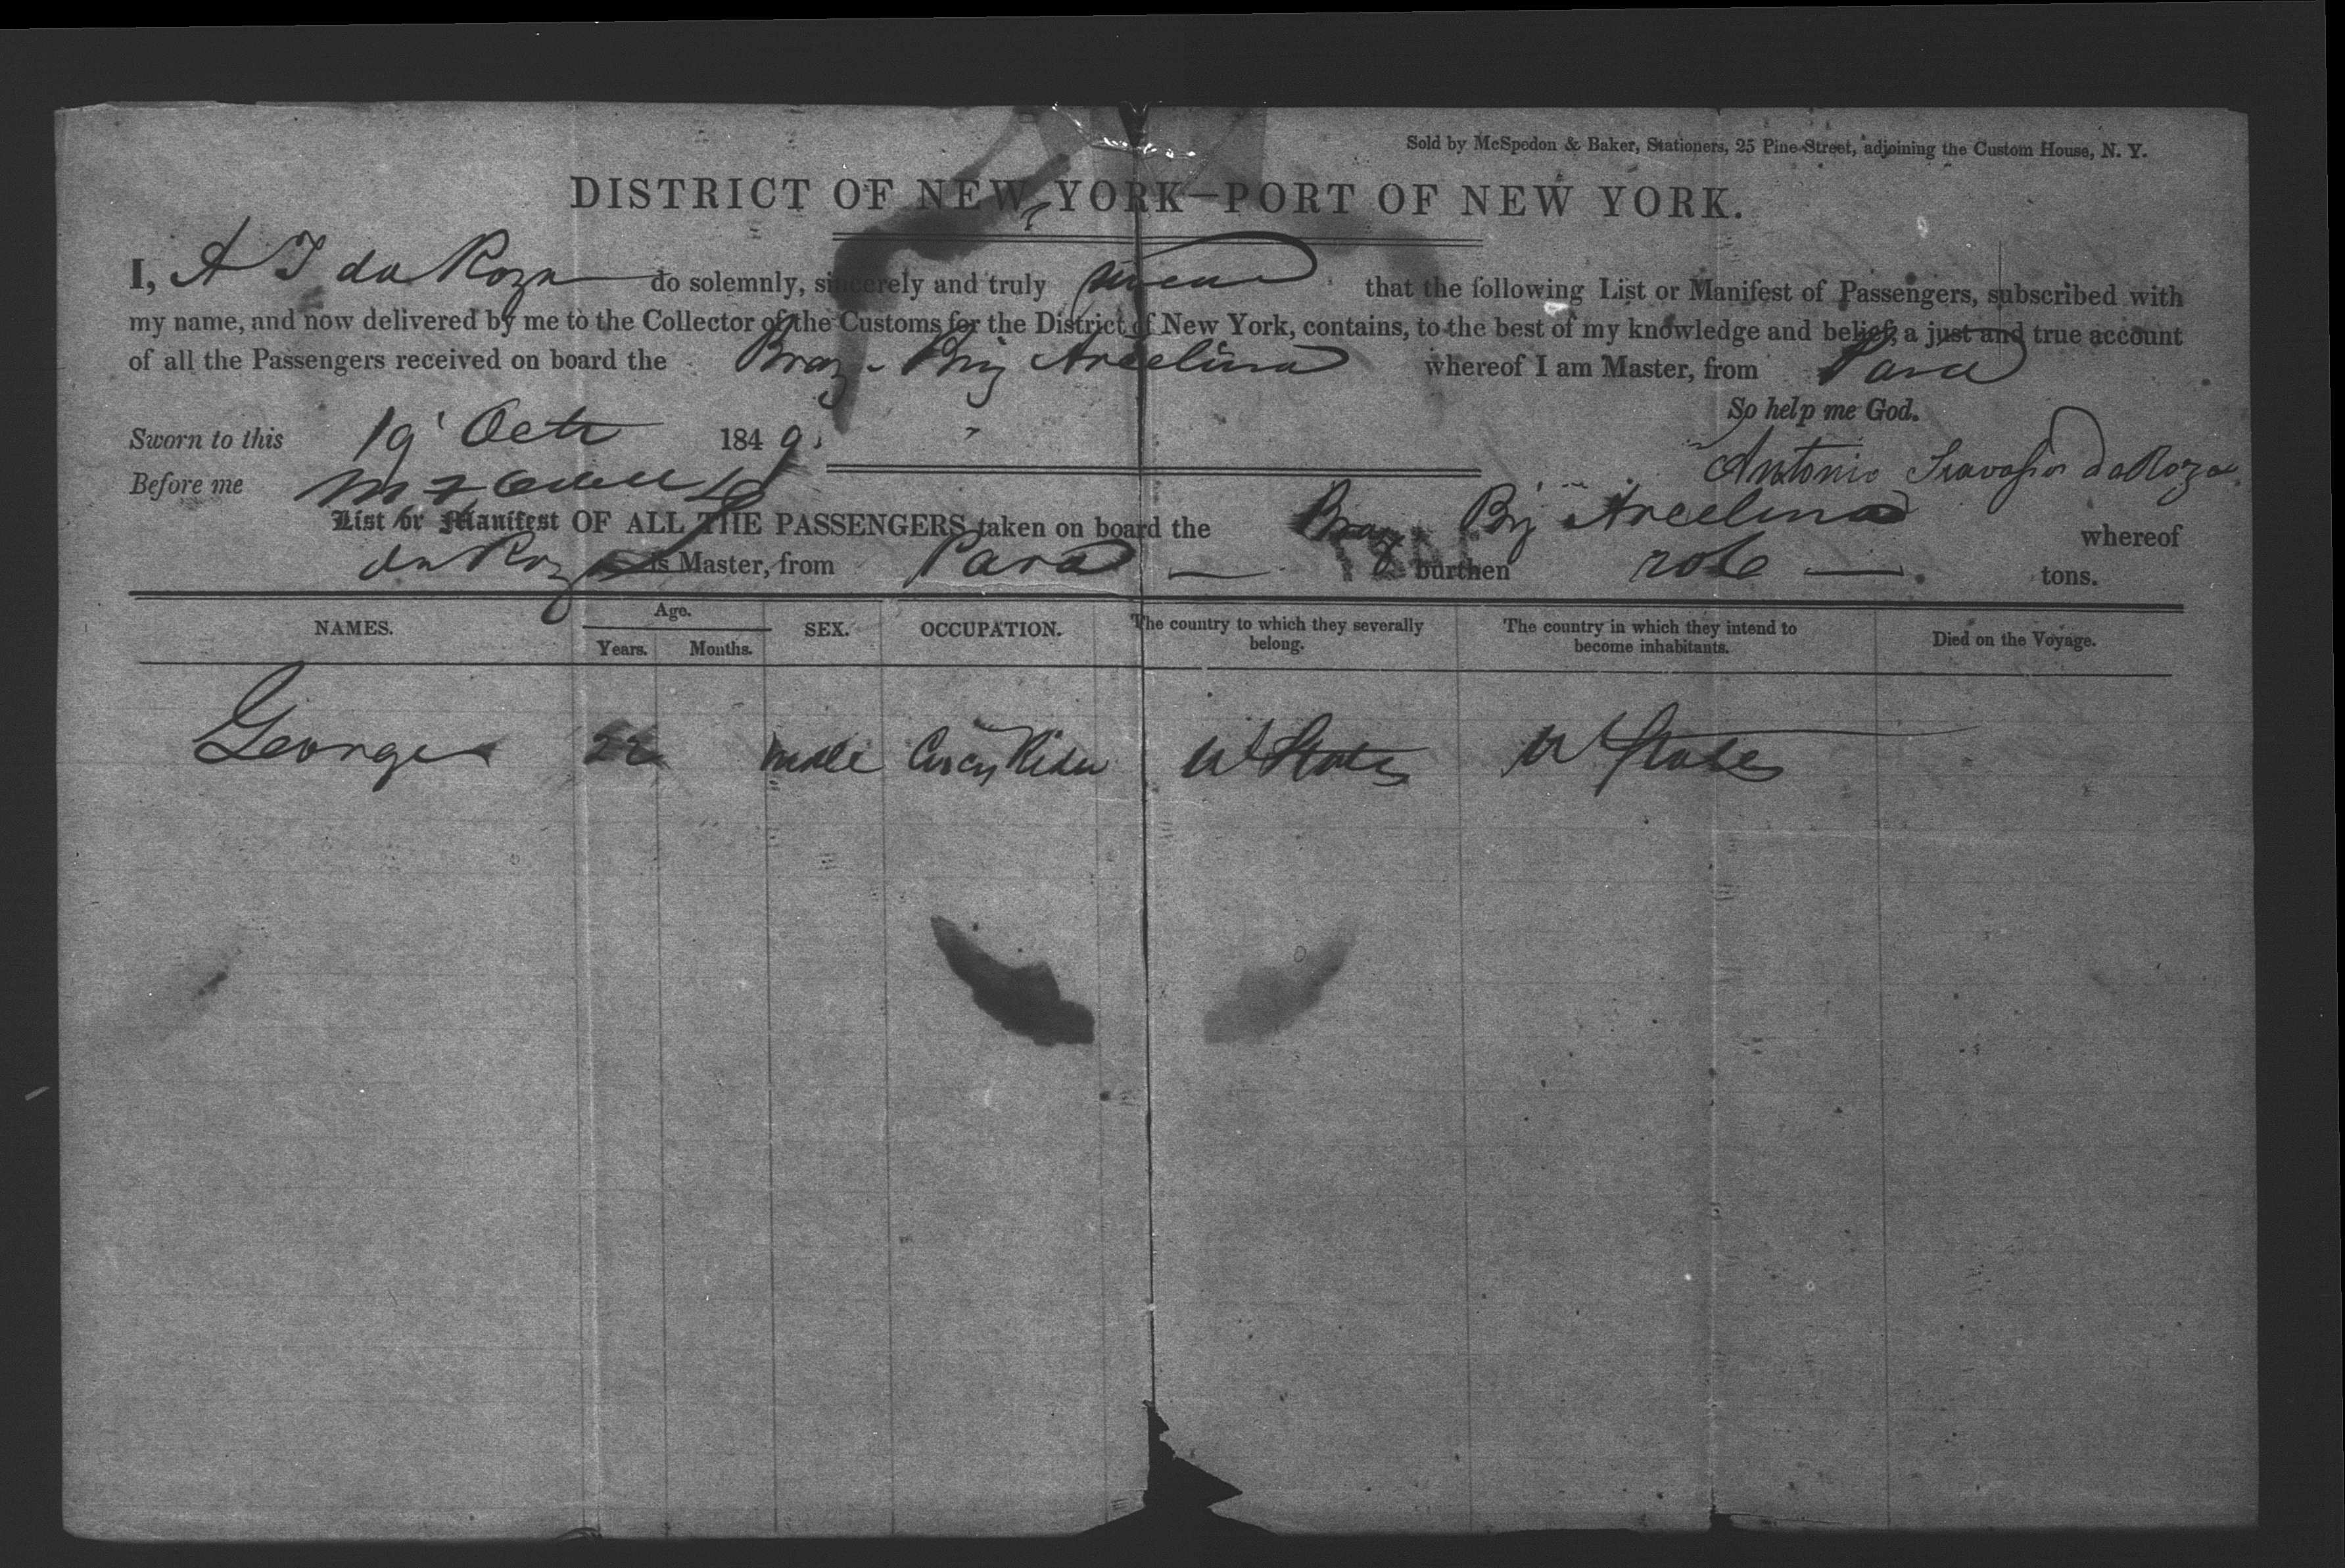 Sold by McSpedon & Baker, Stationers, 25 Pine-Street, adjoining the Custom House, N. Y.
DISTRICT OF NEW YORK—PORT OF NEW YORK.
I, A T da Roza do solemnly, sincerely and truly swear that the following List or Manifest of Passengers, subscribed with
my name, and now delivered by me to the Collector of the Customs for the District of New York, contains, to the best of my knowledge and belief, a just and true account
of all the Passengers received on board the Braz. Brig Arcelina whereof I am Master, from Para
So help me God.
Sworn to this 19 Octr 1849.
Antonio da Roza
Before me
List or Manifest OF ALL THE PASSENGERS taken on board the Braz Brig Arcelina whereof
da Roza is Master, from Para burthen tons.
NAMES. Age. Years. Months. SEX. OCCUPATION. The country to which they severally belong. The country in which they intend to become inhabitants. Died on the Voyage.
George 22 male U States U States